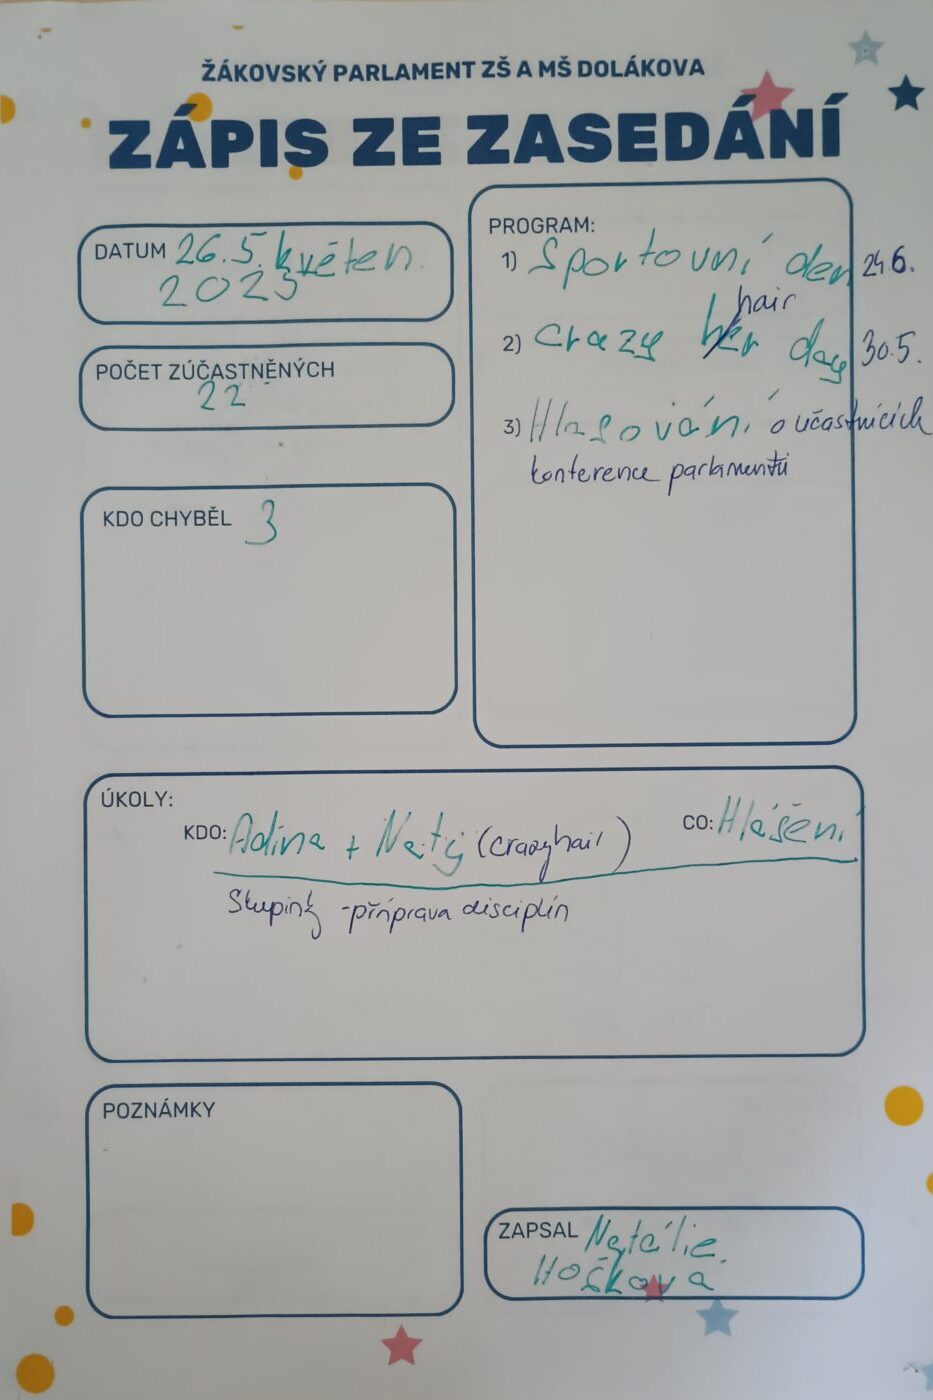 ŽÁKOVSKÝ PARLAMENT ZŠ A MŠ DOLÁKOVA
ZÁPIS ZE ZASEDÁNÍ
DATUM 26.5. květen.
2025
POČET ZÚČASTNĚNÝCH
22
KDO CHYBĚL 3
PROGRAM:
1) Sportovní den 24.6.
hair
2) crazy day 30.5.
3) Hlasování o účastnících
konference parlamentů
ÚKOLY:
KDO: Adina + Naty (crazyhair) CO: Hlášení
Skupinky - příprava disciplín
POZNÁMKY
ZAPSAL Natálie
Hošková